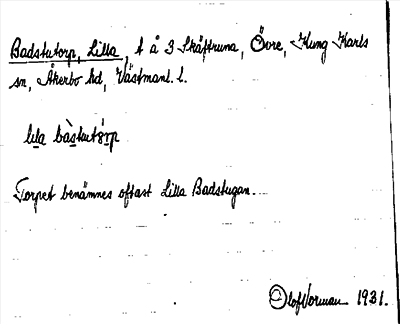 Badstutorp, Lilla, t å 3 Skäftruna, Övre, Kung Karls
sn, Åkerbo hd, Västmanl. l.
lıla bàstutårp
Torpet benämnes oftast Lilla Badstugan.
Olof Norman 1931.